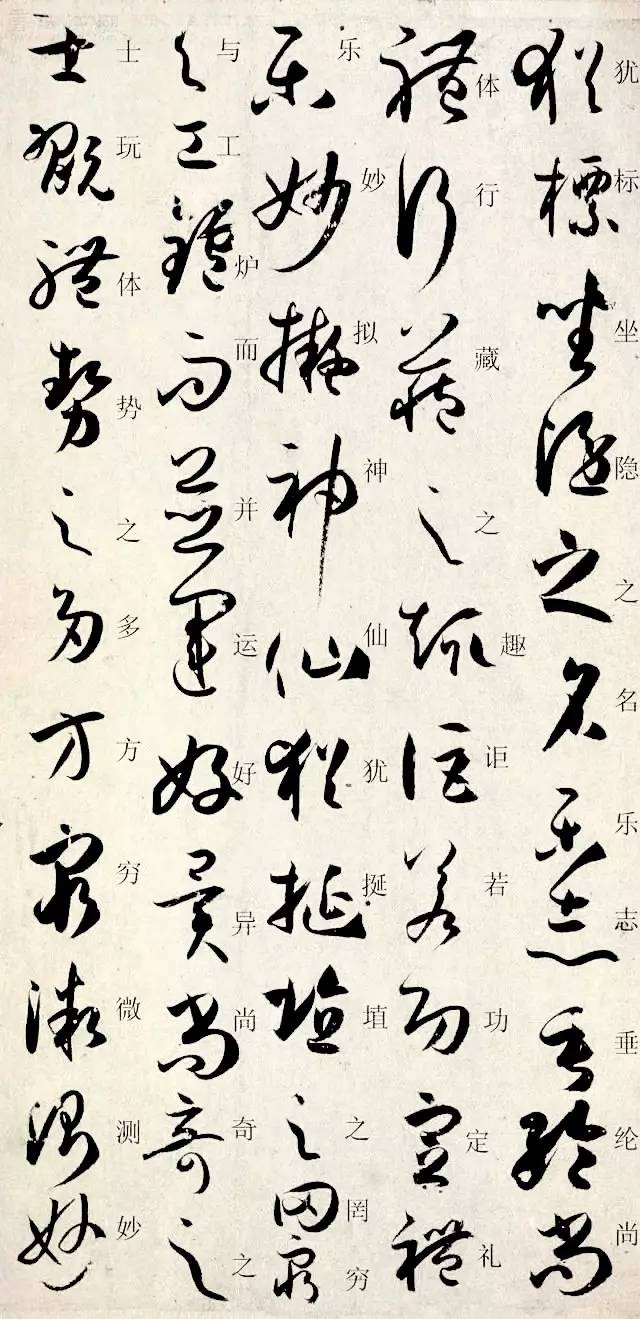 犹标坐隐之名乐志垂纶尚
体行藏之趣讵若功定礼
乐妙拟神仙犹挻埴之罔穷
与工炉而并运好异尚奇之
士玩体势之多方穷微测妙